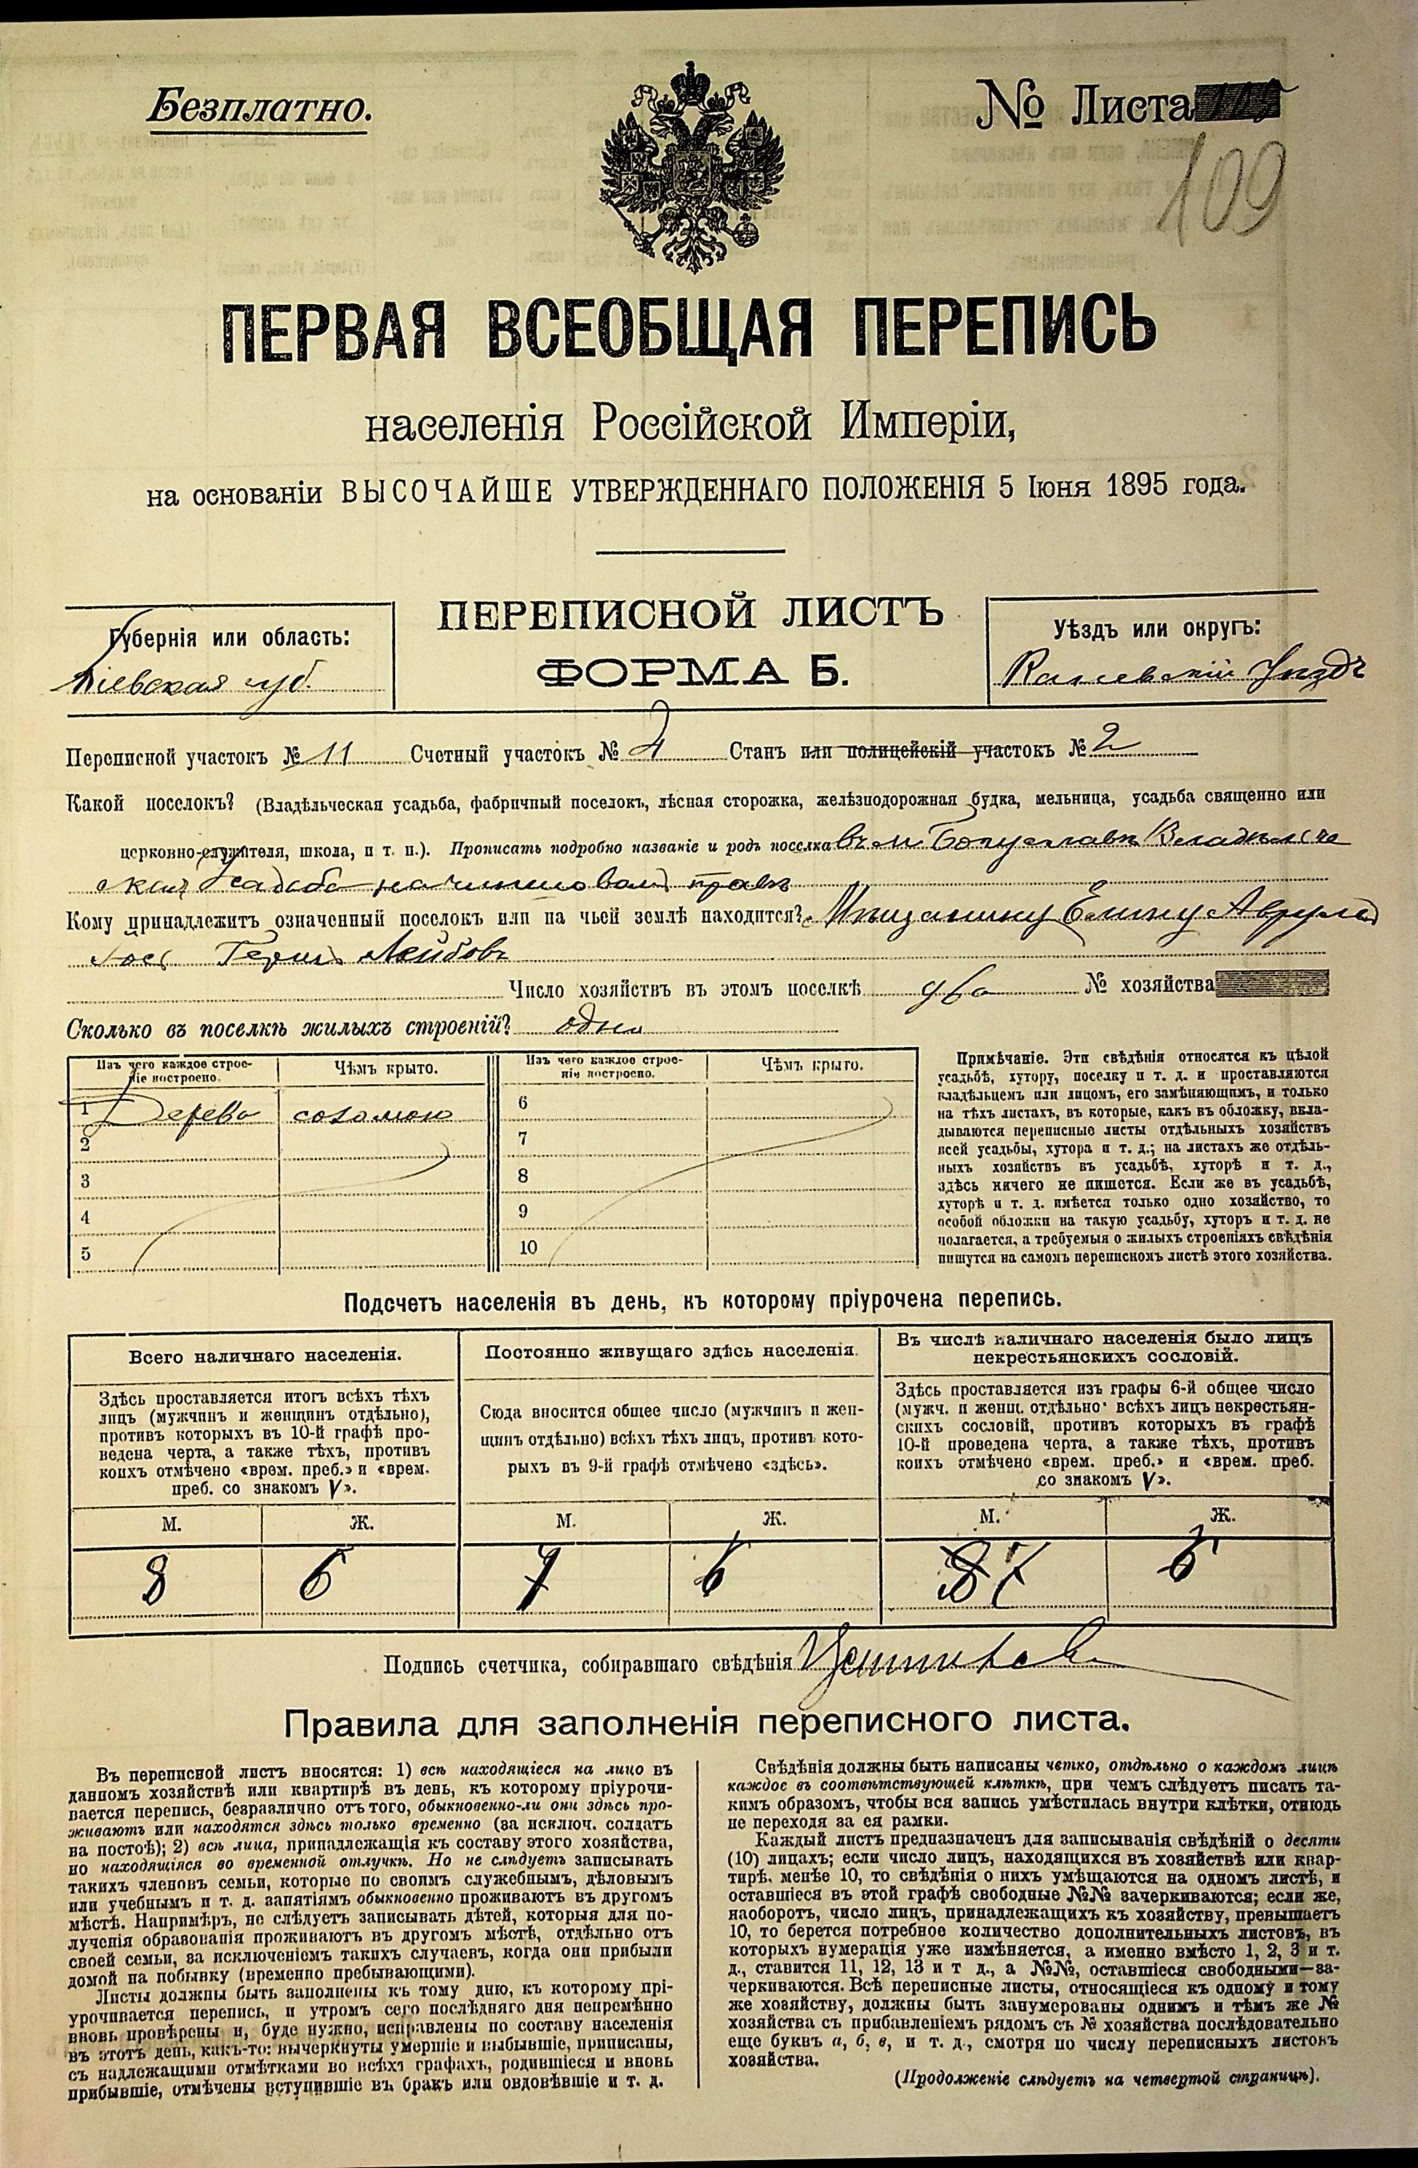 Безплатно.
№ Листа
109
ПЕРВАЯ ВСЕОБЩАЯ ПЕРЕПИСЬ
населенія Россійской Имперіи,
на основаніи ВЫСОЧАЙШЕ УТВЕРЖДЕННАГО ПОЛОЖЕНІЯ 5 Іюня 1895 года.
ПЕРЕПИСНОЙ ЛИСТЪ
ФОРМА Б.
Губернія или область:
Кіевская губ.
Уѣздъ или округъ:
Каневскій Уѣздъ
Переписной участокъ № 11 Счетный участокъ № 4 Станъ или полицейскій участокъ № 2
Какой поселокъ? (Владѣльческая усадьба, фабричный поселокъ, лѣсная сторожка, желѣзнодорожная будка, мельница, усадьба священно или
церковно-служителя, школа, и т. п.). Прописать подробно названіе и родъ поселка въ м. Богуславѣ Владѣльче
ская Усадьба на чиншовом правѣ
Кому принадлежитъ означенный поселокъ или на чьей землѣ находится? Мѣщанину
Герш Лейбовъ
Число хозяйствъ въ этомъ поселкѣ два № хозяйства
Сколько въ поселкѣ жилыхъ строеній? одно
Изъ чего каждое строе-
ніе построено.
Чѣмъ крыто.
Изъ чего каждое строе-
ніе построено.
Чѣмъ крыто.
1 Дерева соломою
2
3
4
5
6
7
8
9
10
Примѣчаніе. Эти свѣдѣнія относятся къ цѣлой
усадьбѣ, хутору, поселку и т. д. и проставляются
владѣльцемъ или лицомъ, его замѣняющимъ, и только
на тѣхъ листахъ, въ которые, какъ въ обложку, вкла-
дываются переписные листы отдѣльныхъ хозяйствъ
всей усадьбы, хутора и т. д.; на листахъ же отдѣль-
ныхъ хозяйствъ въ усадьбѣ, хуторѣ и т. д.,
здѣсь ничего не пишется. Если же въ усадьбѣ,
хуторѣ и т. д. имѣется только одно хозяйство, то
особой обложки на такую усадьбу, хуторъ и т. д. не
полагается, а требуемыя о жилыхъ строеніяхъ свѣдѣнія
пишутся на самомъ переписномъ листѣ этого хозяйства.
Подсчетъ населенія въ день, къ которому пріурочена перепись.
Всего наличнаго населенія.
Здѣсь проставляется итогъ всѣхъ тѣхъ
лицъ (мужчинъ и женщинъ отдѣльно),
противъ которыхъ въ 10-й графѣ про-
ведена черта, а также тѣхъ, противъ
коихъ отмѣчено «врем. преб.» и «врем.
преб. со знакомъ V».
М. Ж.
8 6
Постоянно живущаго здѣсь населенія.
Сюда вносится общее число (мужчинъ и жен-
щинъ отдѣльно) всѣхъ тѣхъ лицъ, противъ кото-
рыхъ въ 9-й графѣ отмѣчено «здѣсь».
М. Ж.
7 6
Въ числѣ наличнаго населенія было лицъ
некрестьянскихъ сословій.
Здѣсь проставляется изъ графы 6-й общее число
(мужч. и женщ. отдѣльно) всѣхъ лицъ некрестьян-
скихъ сословій, противъ которыхъ въ графѣ
10-й проведена черта, а также тѣхъ, противъ
коихъ отмѣчено «врем. преб.» и «врем. преб.
со знакомъ V».
М. Ж.
8 7 6
Подпись счетчика, собиравшаго свѣдѣнія
Правила для заполненія переписного листа.
Въ переписной листъ вносятся: 1) всѣ находящіеся на лицо въ
данномъ хозяйствѣ или квартирѣ въ день, къ которому пріурочи-
вается перепись, безразлично отъ того, обыкновенно-ли они здѣсь про-
живаютъ или находятся здѣсь только временно (за исключ. солдатъ
на постоѣ); 2) всѣ лица, принадлежащія къ составу этого хозяйства,
но находящіяся во временной отлучкѣ. Но не слѣдуетъ записывать
такихъ членовъ семьи, которые по своимъ служебнымъ, дѣловымъ
или учебнымъ и т. д. занятіямъ обыкновенно проживаютъ въ другомъ
мѣстѣ. Напримѣръ, не слѣдуетъ записывать дѣтей, которыя для по-
лученія образованія проживаютъ въ другомъ мѣстѣ, отдѣльно отъ
своей семьи, за исключеніемъ такихъ случаевъ, когда они прибыли
домой на побывку (временно пребывающими).
Листы должны быть заполнены къ тому дню, къ которому прі-
урочивается перепись, и утромъ сего послѣдняго дня непремѣнно
вновь провѣрены и, буде нужно, исправлены по составу населенія
въ этотъ день, какъ-то: вычеркнуты умершіе и выбывшіе, приписаны,
съ надлежащими отмѣтками во всѣхъ графахъ, родившіеся и вновь
прибывшіе, отмѣчены вступившіе въ бракъ или овдовѣвшіе и т. д.
Свѣдѣнія должны быть написаны четко, отдѣльно о каждомъ лицѣ
каждое въ соотвѣтствующей клѣткѣ, при чемъ слѣдуетъ писать та-
кимъ образомъ, чтобы вся запись умѣстилась внутри клѣтки, отнюдь
не переходя за ея рамки.
Каждый листъ предназначенъ для записыванія свѣдѣній о десяти
(10) лицахъ; если число лицъ, находящихся въ хозяйствѣ или квар-
тирѣ, менѣе 10, то свѣдѣнія о нихъ умѣщаются на одномъ листѣ, и
оставшіеся въ этой графѣ свободные №№ зачеркиваются; если же,
наоборотъ, число лицъ, принадлежащихъ къ хозяйству, превышаетъ
10, то берется потребное количество дополнительныхъ листовъ, въ
которыхъ нумерація уже измѣняется, а именно вмѣсто 1, 2, 3 и т.
д., ставится 11, 12, 13 и т д., а №№, оставшіеся свободными—за-
черкиваются. Всѣ переписные листы, относящіеся къ одному и тому
же хозяйству, должны быть занумерованы однимъ и тѣмъ же №
хозяйства съ прибавленіемъ рядомъ съ № хозяйства послѣдовательно
еще буквъ а, б, в, и т. д., смотря по числу переписныхъ листовъ
хозяйства.
(Продолженіе слѣдуетъ на четвертой страницѣ).